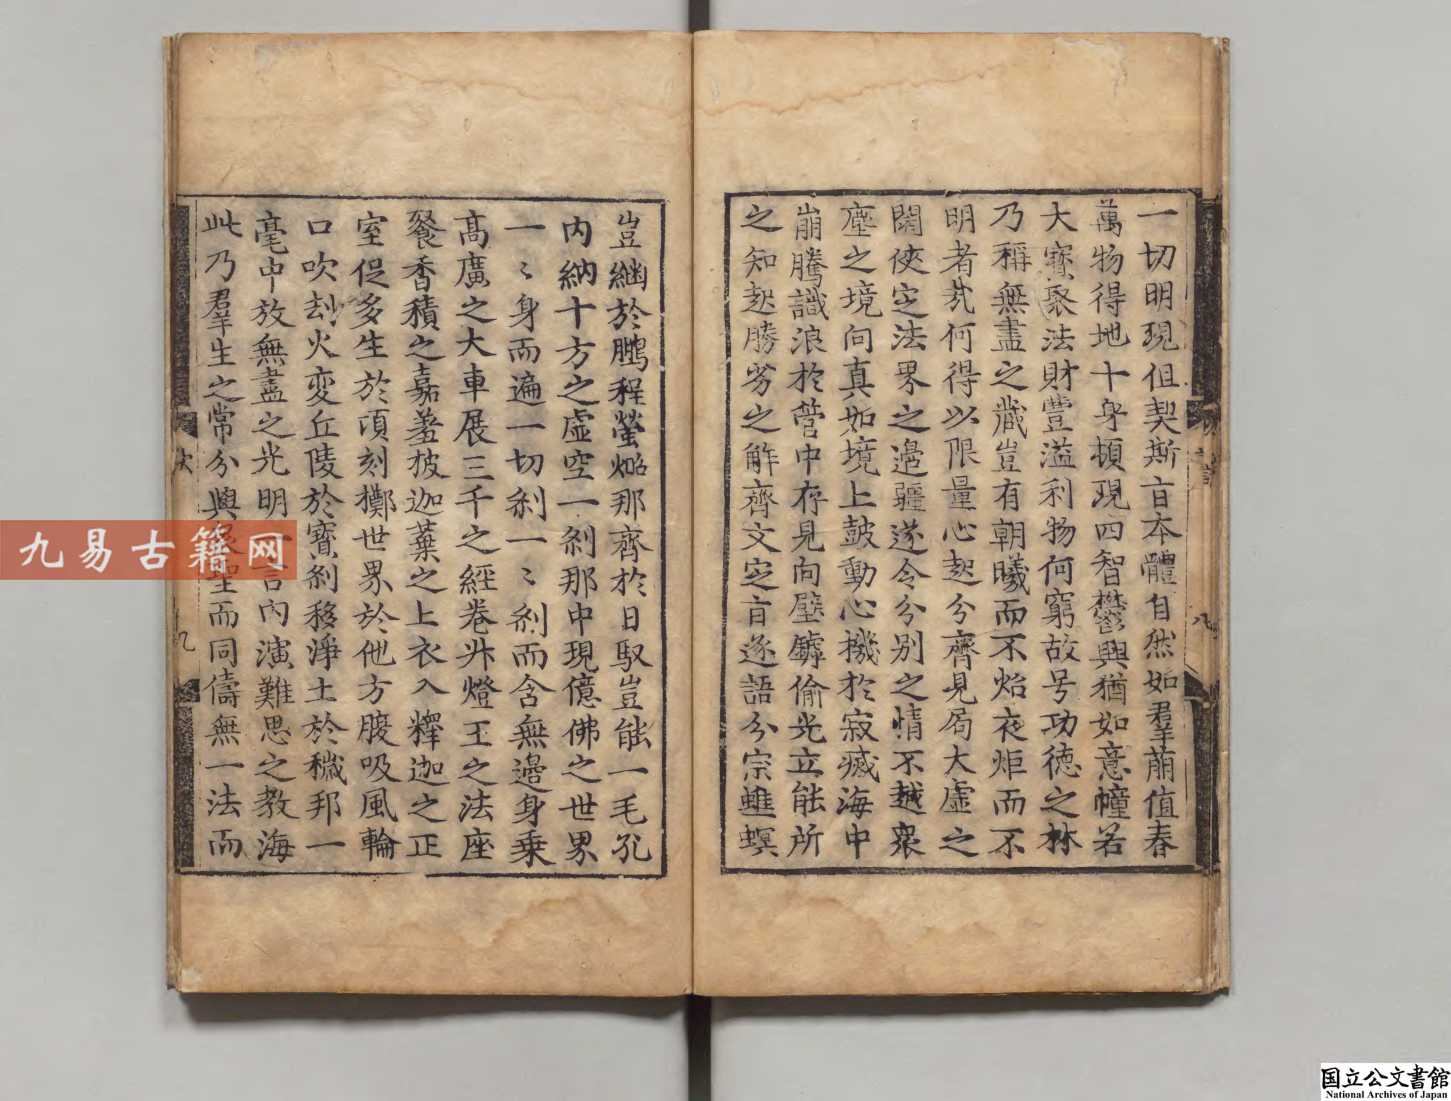 一切明現但契斯旨本體自然如羣萠值春
萬物得地十身頓現四智欝興猶如意幢若
大寳聚法財豐溢利物何窮故号功德之林
乃稱無盡之藏豈有朝曦而不炤夜炬而不
明者㢤何得以限量心起分齊見局大虛之
闊俠定法界之邉疆遂令分別之情不越衆
塵之境向真如境上鼓動心機於寂滅海中
崩騰識浪於管中存見向壁鏬偷光立能所
之知起勝劣之解齊文定旨逐語分宗蟭螟
豈繼於鵬程螢㷖那齊於日馭豈能一毛孔
内納十方之虛空一剎那中現億佛之世界
一〻身而遍一切剎一〻剎而含無邉身乗
髙廣之大車展三千之經卷升燈王之法座
餐香積之嘉羞披迦葉之上衣入釋迦之正
室促多生於頃刻擲世界於他方腹吸風輪
口吹刼火变丘陵於寳剎移淨土於穢邦一
毫中放無盡之光明 言内演難思之教海
此乃羣生之常分與 聖而同儔無一法而
八
九
九易古籍网
国立公文書館
National Archives of Japan